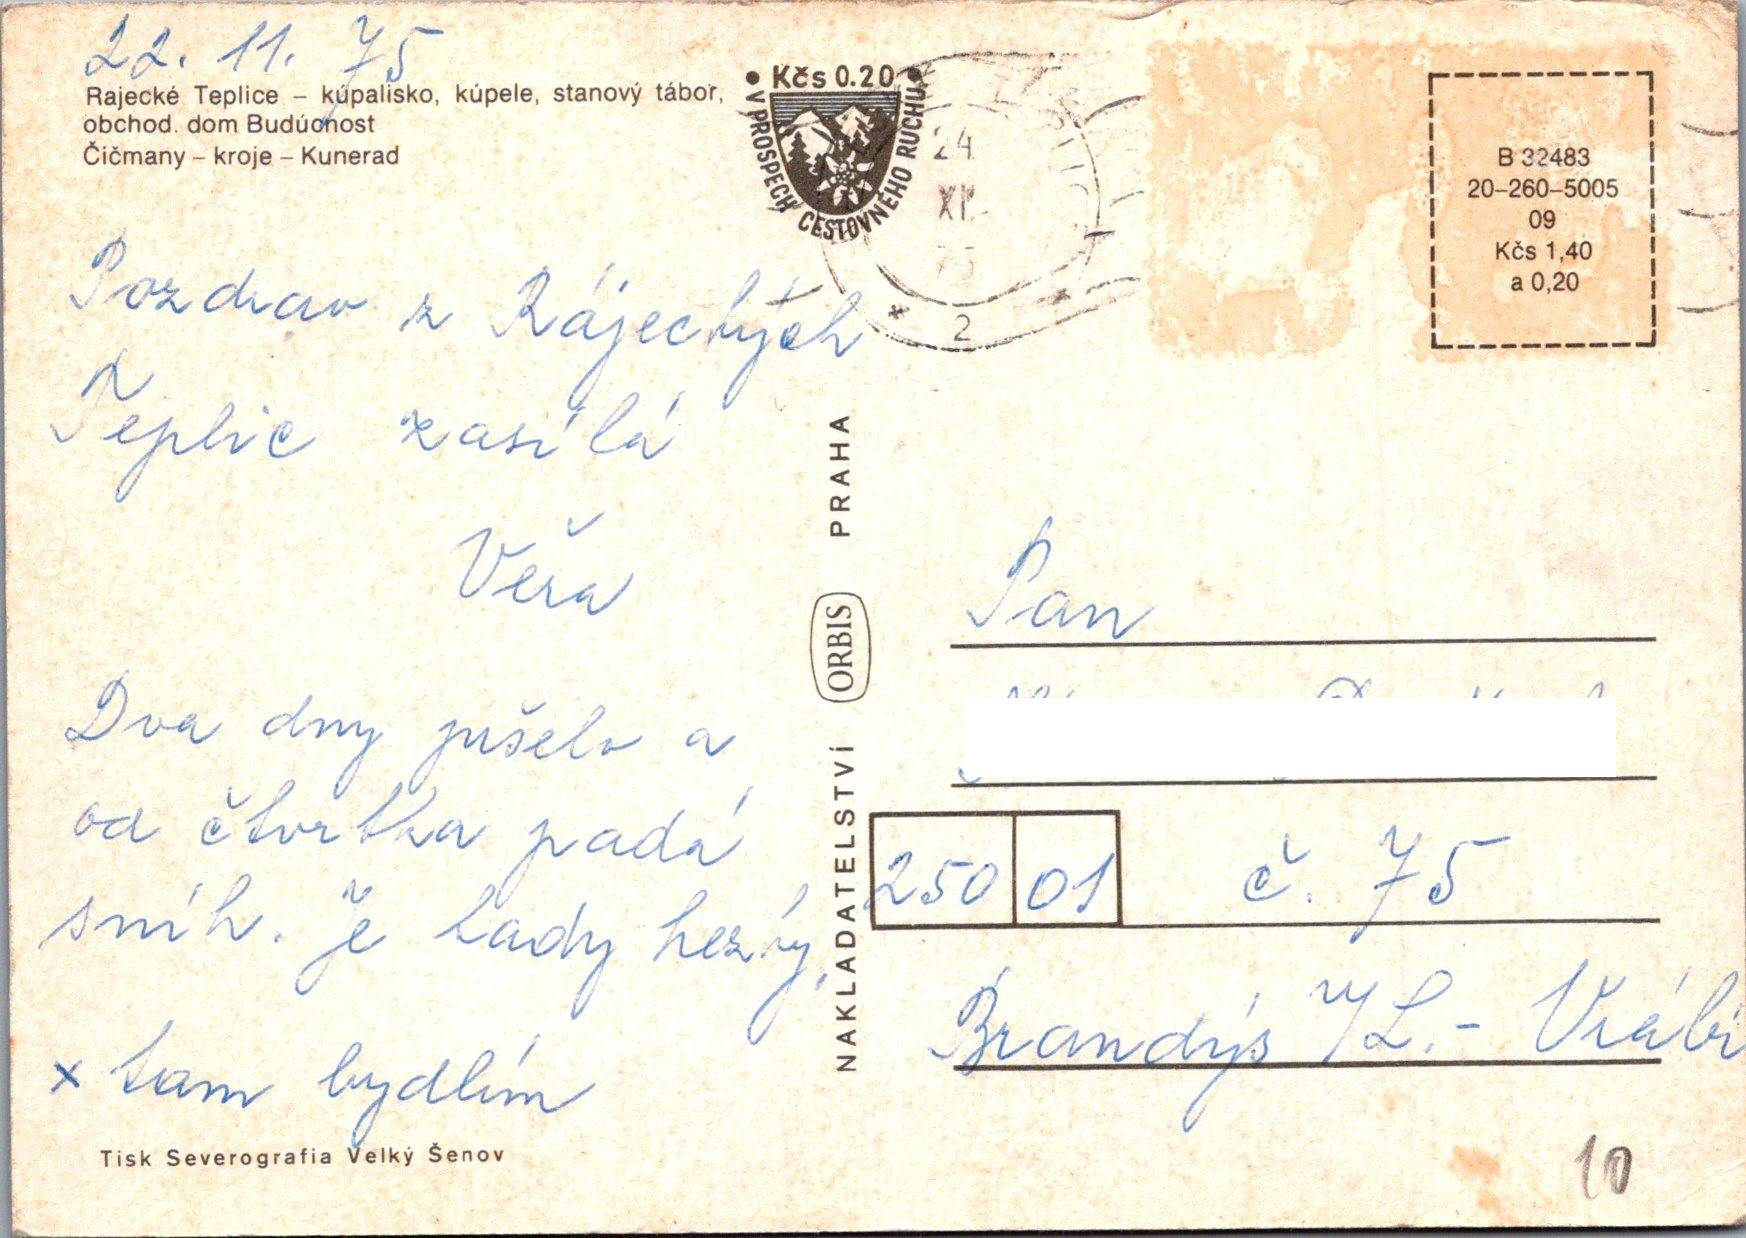 22. 11. 75
Rajecké Teplice – kúpalisko, kúpele, stanový tábor,
obchod. dom Budúcnost
Čičmany – kroje – Kunerad
• Kčs 0.20 •
V PROSPECH CESTOVNÉHO RUCHU
24
XI.
75
2
B 32483
20–260–5005
09
Kčs 1,40
a 0,20
Pozdrav z Rájeckých
Teplic zasílá
Věra
Dva dny pršelo a
od čtvrtka padá
sníh. Je tady hezky,
x tam bydlím
Tisk Severografia Velký Šenov
NAKLADATELSTVÍ ORBIS PRAHA
Pan
250 01 č. 75
Brandýs n/L. - Vrábí
10